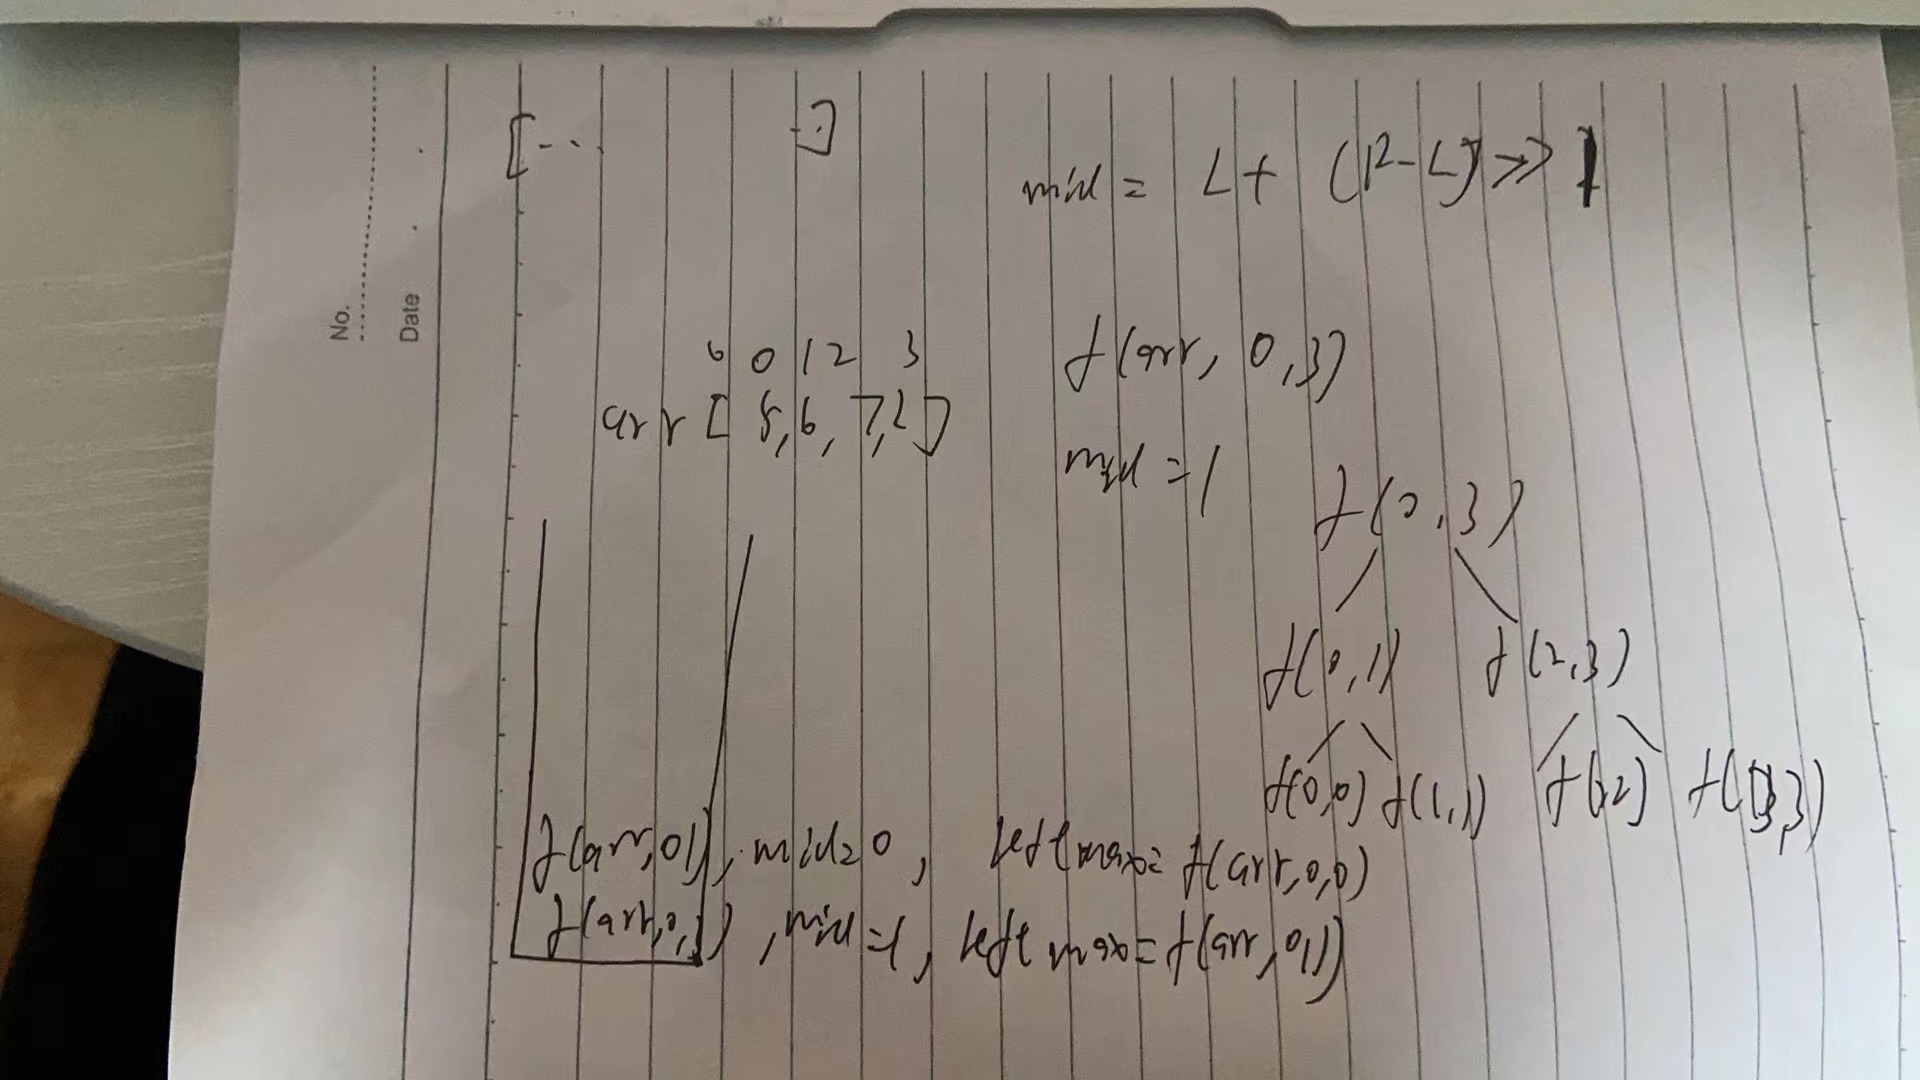 No.
Date
[... ..]
mid = L + (R-L) >> 1
0 1 2 3
arr [5,6,7,2]
f(arr, 0,3)
mid = 1
f(0,3)
f(0,1) f(2,3)
f(0,0) f(1,1) f(2,2) f(3,3)
f(arr,0,1), mid=0, leftmax=f(arr,0,0)
f(arr,0,3), mid=1, leftmax=f(arr,0,1)